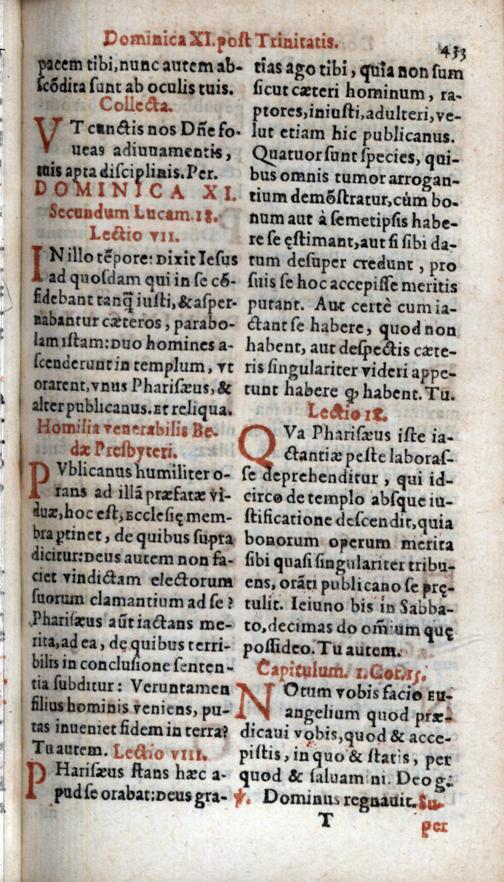 Dominica XI. post Trinitatis.
433
pacem tibi, nunc autem ab-
scōdita sunt ab oculis tuis.
Collecta.
VT cunctis nos Dñe fo-
ueas adiuuamentis,
tuis apta disciplinis. Per.
DOMINICA XI.
Secundum Lucam. 18.
Lectio VII.
IN illo tēpore: Dixit Iesus
ad quosdam qui in se cō-
fidebant tanq̃ iusti, & asper-
nabantur cæteros, parabo-
lam istam: Duo homines a-
scenderunt in templum, vt
orarent, vnus Pharisæus, &
alter publicanus. Et reliqua.
Homilia venerabilis Be-
dæ Presbyteri.
PVblicanus humiliter o-
rans ad illā præfatæ vi-
duæ, hoc est, Ecclesię mem-
bra ptinet, de quibus supra
dicitur: Deus autem non fa-
ciet vindictam electorum
suorum clamantium ad se?
Pharisæus aūt iactans me-
rita, ad ea, de quibus terri-
bilis in conclusione senten-
tia subditur: Veruntamen
filius hominis veniens, pu-
tas inueniet fidem in terra?
Tu autem. Lectio VIII.
PHarisæus stans hæc a-
pud se orabat: Deus gra-
tias ago tibi, quia non sum
sicut cæteri hominum, ra-
ptores, iniusti, adulteri, ve-
lut etiam hic publicanus.
Quatuor sunt species, qui-
bus omnis tumor arrogan-
tium demōstratur, cùm bo-
num aut à semetipsis habe-
re se ęstimant, aut si sibi da-
tum desuper credunt, pro
suis se hoc accepisse meritis
putant. Aut certè cum ia-
ctant se habere, quod non
habent, aut despectis cæte-
ris singulariter videri appe-
tunt habere ꝙ habent. Tu.
Lectio IX.
QVa Pharisæus iste ia-
ctantiæ peste laboras-
se deprehenditur, qui id-
circo de templo absque iu-
stificatione descendit, quia
bonorum operum merita
sibi quasi singulariter tribu-
ens, orāti publicano se prę-
tulit. Ieiuno bis in Sabba-
to, decimas do omīum quę
possideo. Tu autem.
Capitulum. 1. Cor. 15.
NOtum vobis facio Eu-
angelium quod præ-
dicaui vobis, quod & acce-
pistis, in quo & statis, per
quod & saluamini. Deo g.
℣. Dominus regnauit. Su-
T
per